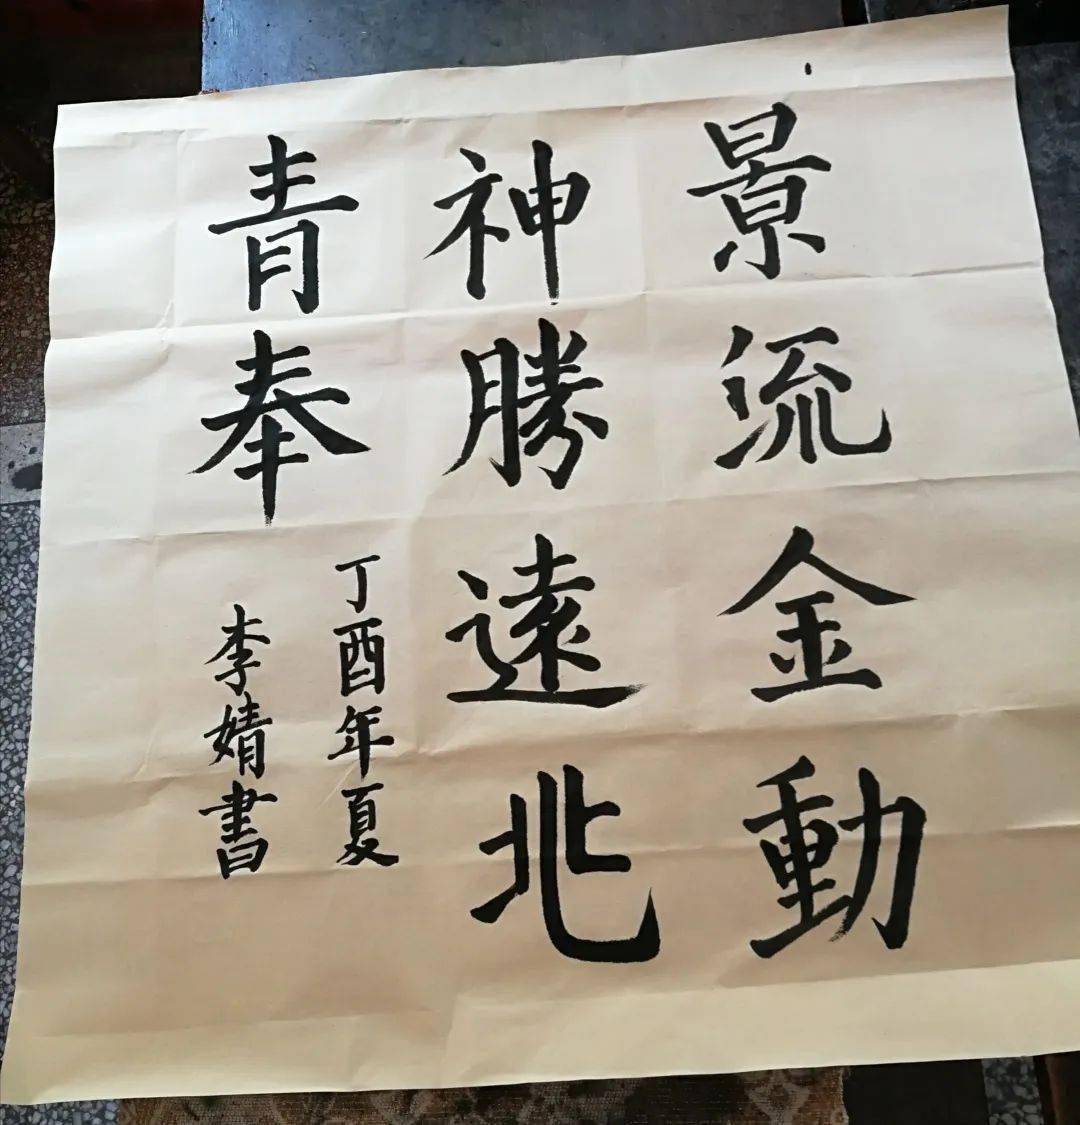 景流金動
神勝遠北
青奉
丁酉年夏
李婧書